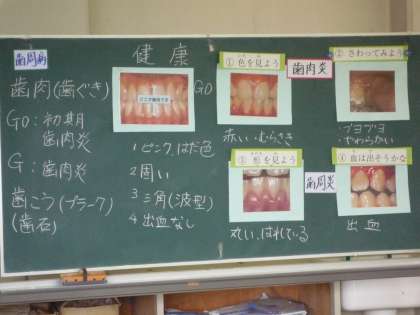 歯周病
歯肉(歯ぐき)
G0:初期
歯肉炎
G:歯肉炎
歯こう(プラーク)
(歯石)
健康
G0
1 ピンク、はだ色
2 固い
3 三角(波型)
4 出血なし
①色を見よう
赤い・むらさき
歯肉炎
②さわってみよう
ブヨブヨ
やわらかい
③形を見よう
丸い、はれている
歯周炎
④血は出そうかな
出血